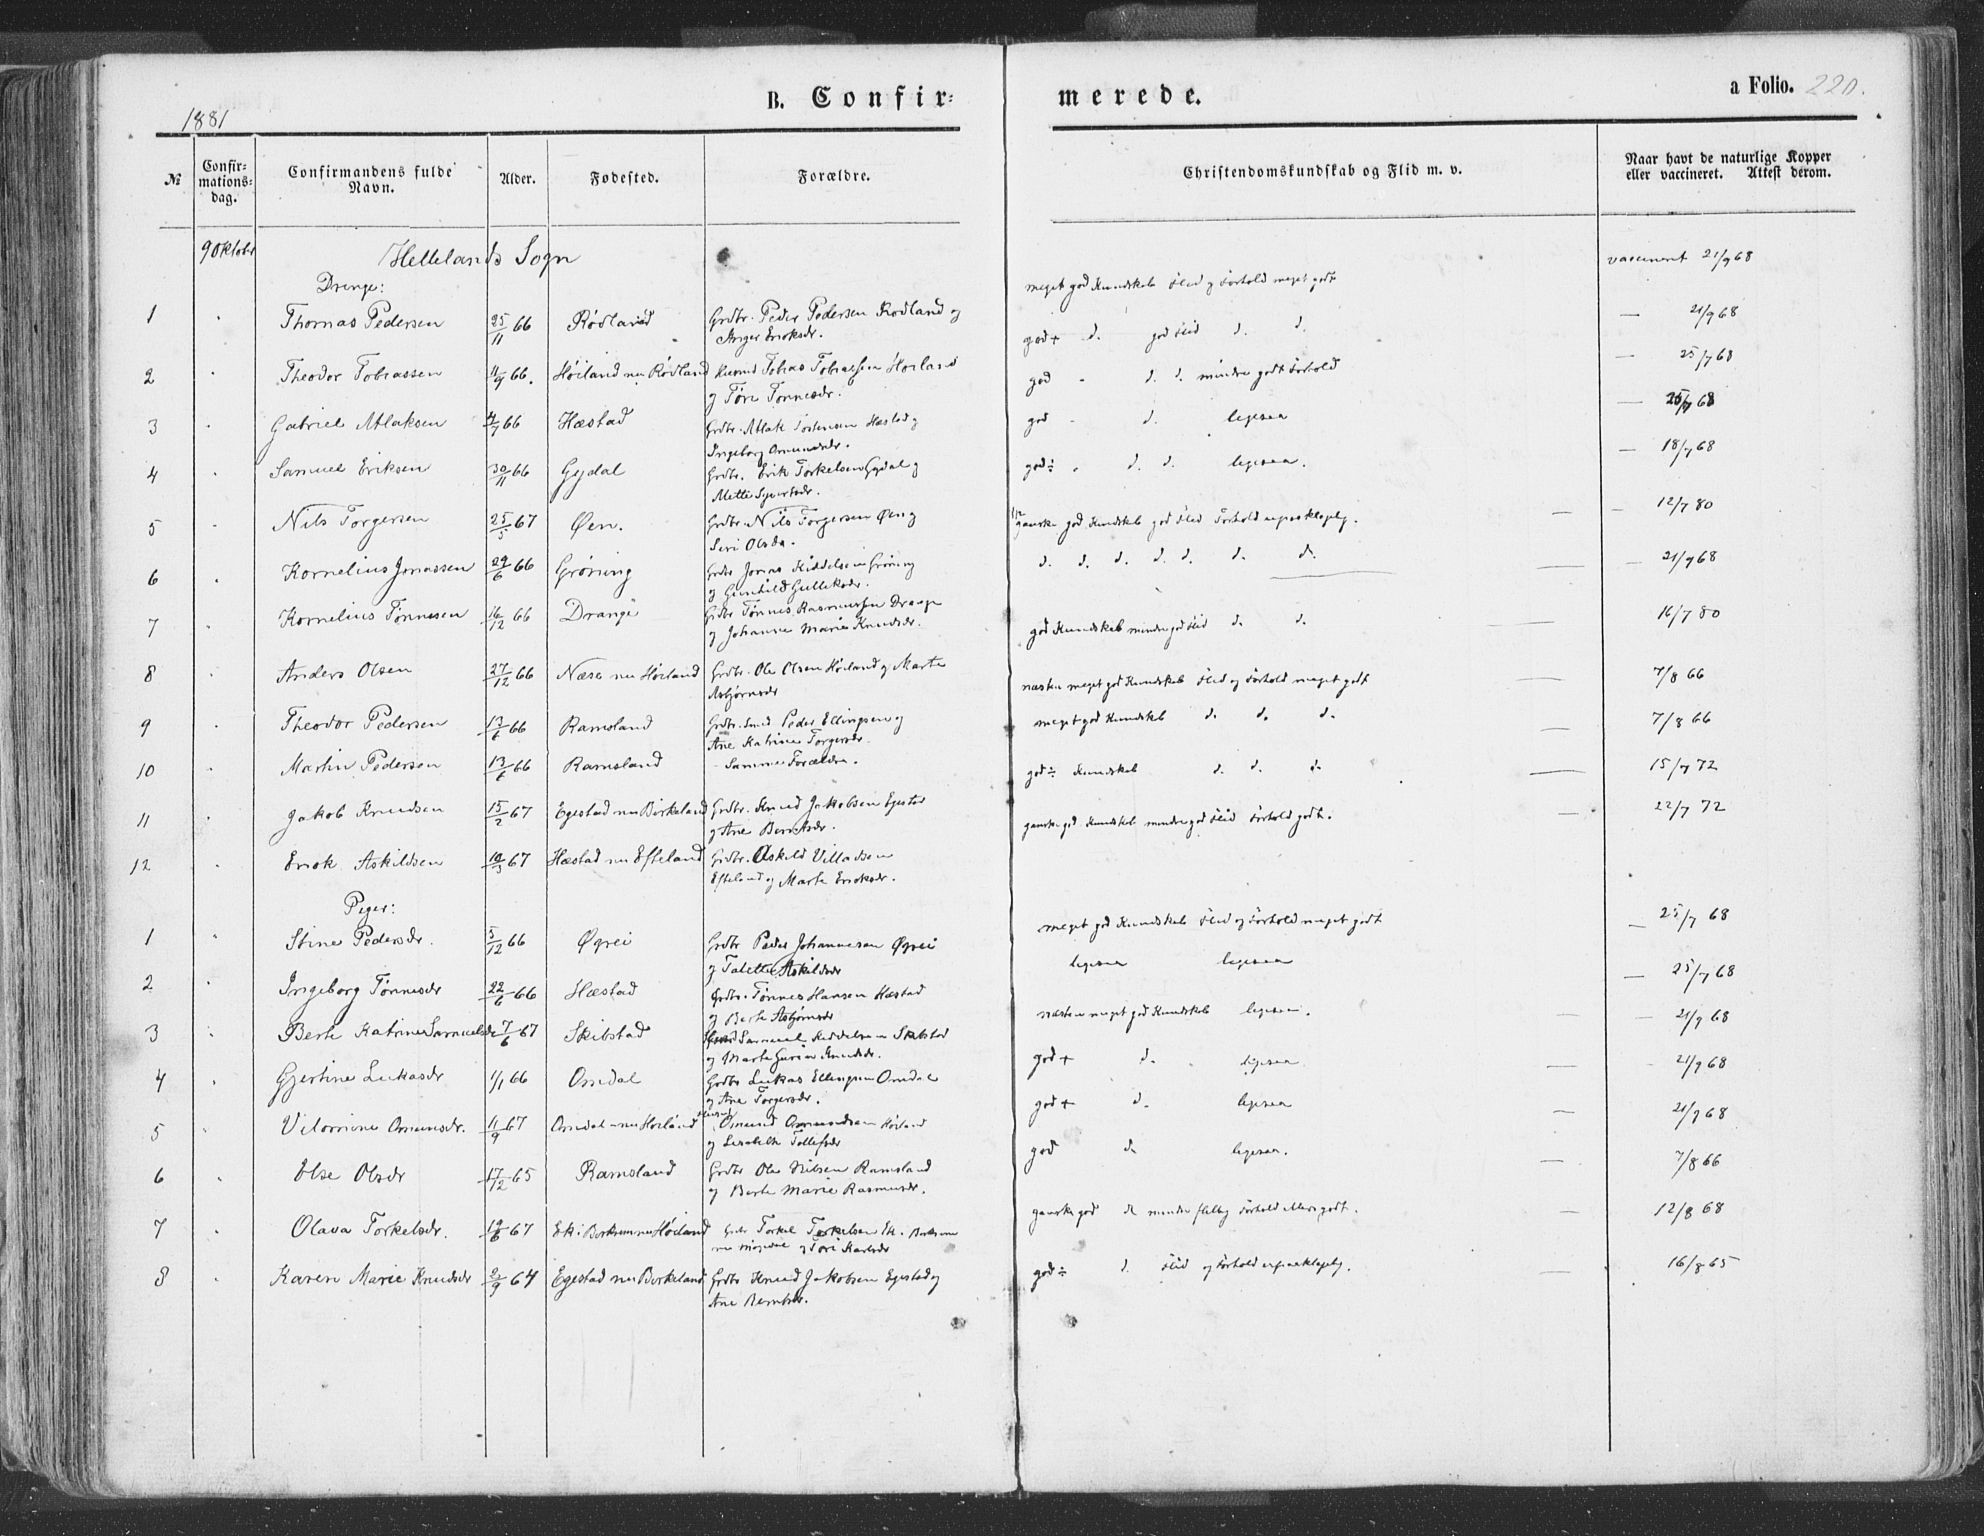 1881
B. Confir=
merede.
a Folio. 220.
№ Confir=mations=dag. Confirmandens fulde Navn. Alder. Fødested. Forældre. Christendomskundskab og Flid m. v. Naar havt de naturlige Kopper eller vaccineret. Attest derom.
9 Oktober Hellelands Sogn
Drenge:
1 Thomas Pedersen 25/11 66 Rødland Grdbr. Peder Pedersen Rødland og meget god Kundskab Flid og Forhold meget godt vaccineret 21/9 68
Inger Eriksdr.
2 Theodor Tobiassen 11/9 66. Høiland nu Rødland Tobias Tobiassen Høiland god + d. god Flid d. d. — 21/9 68
og Tøri Tønnesdr.
3 Gabriel Atlaksen 4/7 66 Hæstad Grdbr. Atlak Hæstad og god - d. d. mindre godt Forhold — 25/7 68
Ingeborg Omundsdr.
4 Samuel Eriksen 30/11 66 Gydal Grdbr. Erik Torkelsen Gydal og god - d. ligesaa — 25/7 68
Mette Sivertsdr.
5 Nils Torgersen 25/5 67 Øen. Grdbr. Nils Torgersen Øen og god ÷ d. d. ligesaa. — 18/7 68
Siri Olsdr.
6 Kornelius Jonassen 29/6 66 Grøning Grdbr Jonas Kiddelsen Grøning ganske god Kundskab god Flid Forhold upaaklagelig. — 12/7 80
og Gunhild Gulleksdr.
7 Kornelius Tønnesen 16/12 66 Drange Grdbr Tønnes Rasmussen Drange d. d. d. d. d. d. d. — 21/9 68
og Johanne Marie Knudsdr.
8 Anders Olsen 27/12 66 Næse nu Høiland Grdbr. Ole Olsen Høiland og Marte god Kundskab mindre god Flid d. d. — 16/7 80
Asbjørnsdr
9 Theodor Pedersen 13/6 66 Ramsland Grdbr. Smed Peder Ellingsen og næsten meget god Kundskab Flid og Forhold meget godt — 7/8 66
Ane Katrine Torgersdr.
10 Martin Pedersen 13/6 66 Ramsland - Samme Forældre. meget god Kundskab d. d. d. — 7/8 66
11 Jakob Knudsen 15/2 67 Egestad nu Birkeland Grdbr. Knud Jakobsen Egestad god ÷ Kundskab d. d. d — 15/7 72
og Ane Berntsdr.
12 Erik Askildsen 10/3 67 Hæstad nu Efteland Grdbr. Askild Villadsen ganske god Kundskab mindre god Flid Forhold godt. — 22/7 72
Efteland og Marte Eriksdr.
Piger:
1 Stine Pedersdr. 5/12 66 Øgrei Grdbr Peder Johannesen Øgrei meget god Kundskab Flid og Forhold meget godt — 25/7 68
og Talette Askildsdr
2 Ingeborg Tønnesdr 22/6 66 Hæstad Grdbr. Tønnes Hansen Hæstad ligesaa ligesaa — 25/7 68
og Berte Asbjørnsdr
3 Berte Katrine Samuelsdr 7/6 67 Skibstad Samuel Kiddelsen Skibstad næsten meget god Kundskab ligesaa. — 21/9 68
og Marte Gurine Knudsdr.
4 Gjertine Lukasdr 1/1 66 Omdal Grdbr Lukas Ellingsen Omdal god + d. ligesaa — 21/9 68
og Ane Torgersdr.
5 Vilomine Omundsdr. 11/9 67 Omdal nu Høiland Omund Omundsen Høiland god + d. ligesaa — 21/9 68
og Lisabeth Tollefsdr
6 Else Olsdr 17/12 65 Ramsland Grdbr Ole Nilsen Ramsland god d. ligesaa. — 7/8 66
og Berte Marie Rasmusdr.
7 Olava Torkelsdr. 19/6 67 Ek i Birkrem nu Høiland Grdbr Torkel Torkelsen Ek i Birkrem ganske god d. mindre flittig Forhold ellers godt. — 12/8 68
nu og Tøri Karlsdr
8 Karen Marie Knudsdr 2/9 64 Egestad nu Birkeland Grdbr Knud Jakobsen Egestad og god ÷ d. Flid og Forhold upaaklagelig. — 16/8 65
Ane Berntsdr.